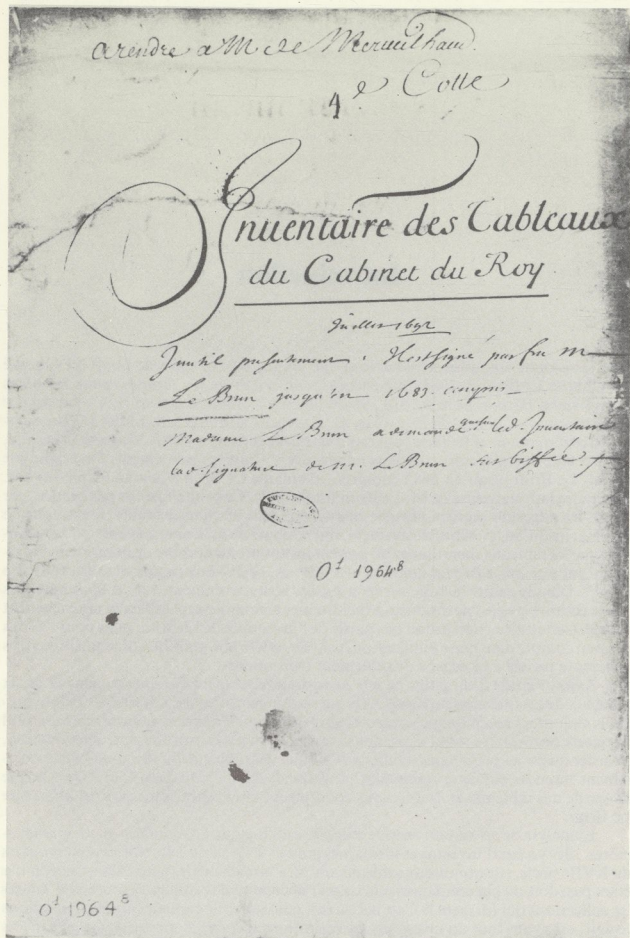 arendre a M de
4 e Cotte
Inuentaire des Tableaux
du Cabinet du Roy
Juillet 1692
Inutil presentement . Il est signé par feu M
Le Brun jusqu'en 1683. compris
Madame Le Brun a demandé que sur led. Inuentaire
lad. signature de M. Le Brun fut biffée.
O¹ 1964⁸
O¹ 1964⁸